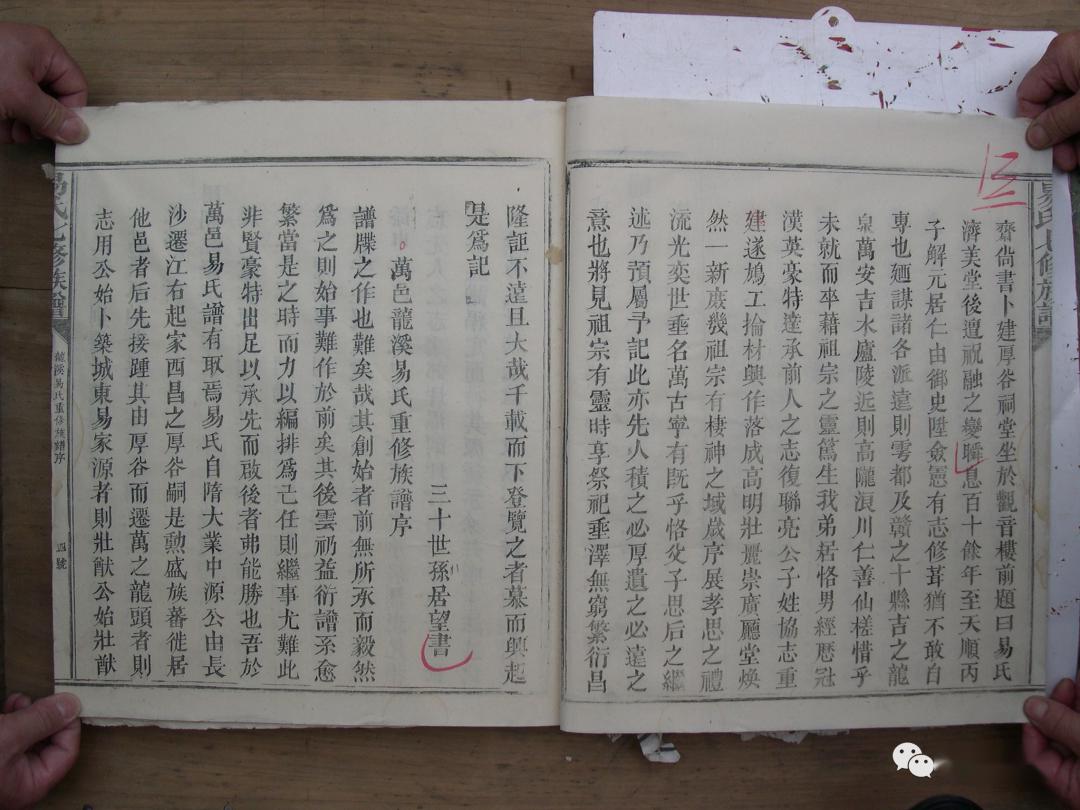 齋尚書卜建厚谷祠堂坐於觀音樓前題曰易氏
濟美堂後遭祝融之變瞬息百十餘年至天順丙
子解元居仁由御史陞僉憲有志修葺猶不敢自
專也廼謀諸各派遠則雩都及贛之十縣吉之龍
泉萬安吉水廬陵近則高隴浪川仁善仙槎惜乎
未就而卒藉祖宗之靈篤生我弟居恪男經歷冠
漢英豪特達承前人之志復聯亮公子姓協志重
建遂鳩工掄材興作落成高明壯麗崇廣廳堂煥
然一新庶幾祖宗有棲神之域歲序展孝思之禮
流光奕世垂名萬古寧有既乎恪父子思后之繼
述乃預屬予記此亦先人積之必厚遺之必遠之
意也將見祖宗有靈時享祭祀垂澤無窮繁衍昌
隆証不遠且大哉千載而下登覽之者慕而興起
是爲記
三十世孫居望書
萬邑龍溪易氏重修族譜序
譜牒之作也難矣哉其創始者前無所承而毅然
爲之則始事難作於前矣其後雲礽益衍譜系愈
繁當是之時而力以編排爲己任則繼事尤難此
非賢豪特出足以承先而啟後者弗能勝也吾於
萬邑易氏譜有取焉易氏自隋大業中源公由長
沙遷江右起家西昌之厚谷嗣是勲盛族蕃徙居
他邑者后先接踵其由厚谷而遷萬之龍頭者則
志用公始卜築城東易家源者則壯猷公始壯猷
龍溪易氏重修族譜序
四號